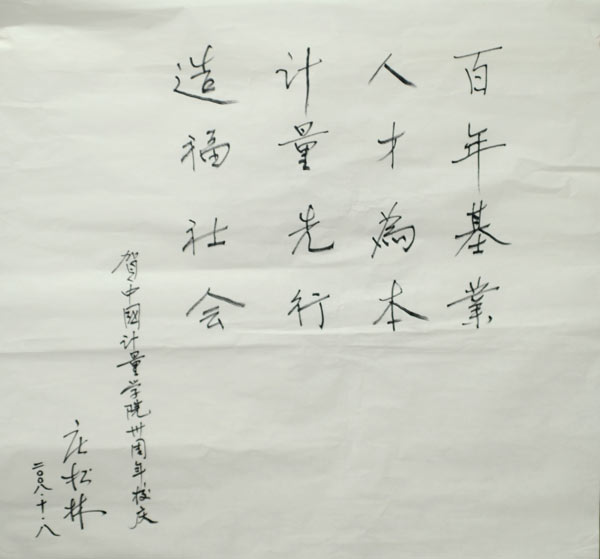 百年基業
人才為本
计量先行
造福社会
贺中國计量学院卅周年校庆
庄松林
二〇〇八·十·八